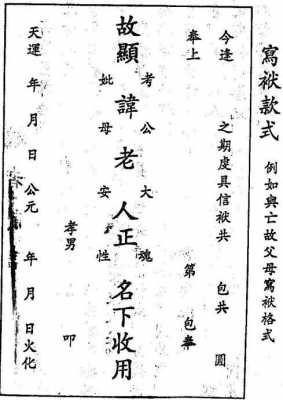 寫袱款式 例如與亡故父母寫袱格式
今逢 之期虔具信袱共 包共 圓
奉上 第 包奉
考公大魂
故顯諱老人正名下收用
妣母安性
孝男 叩
天運 年 月 日 公元 年 月 日火化